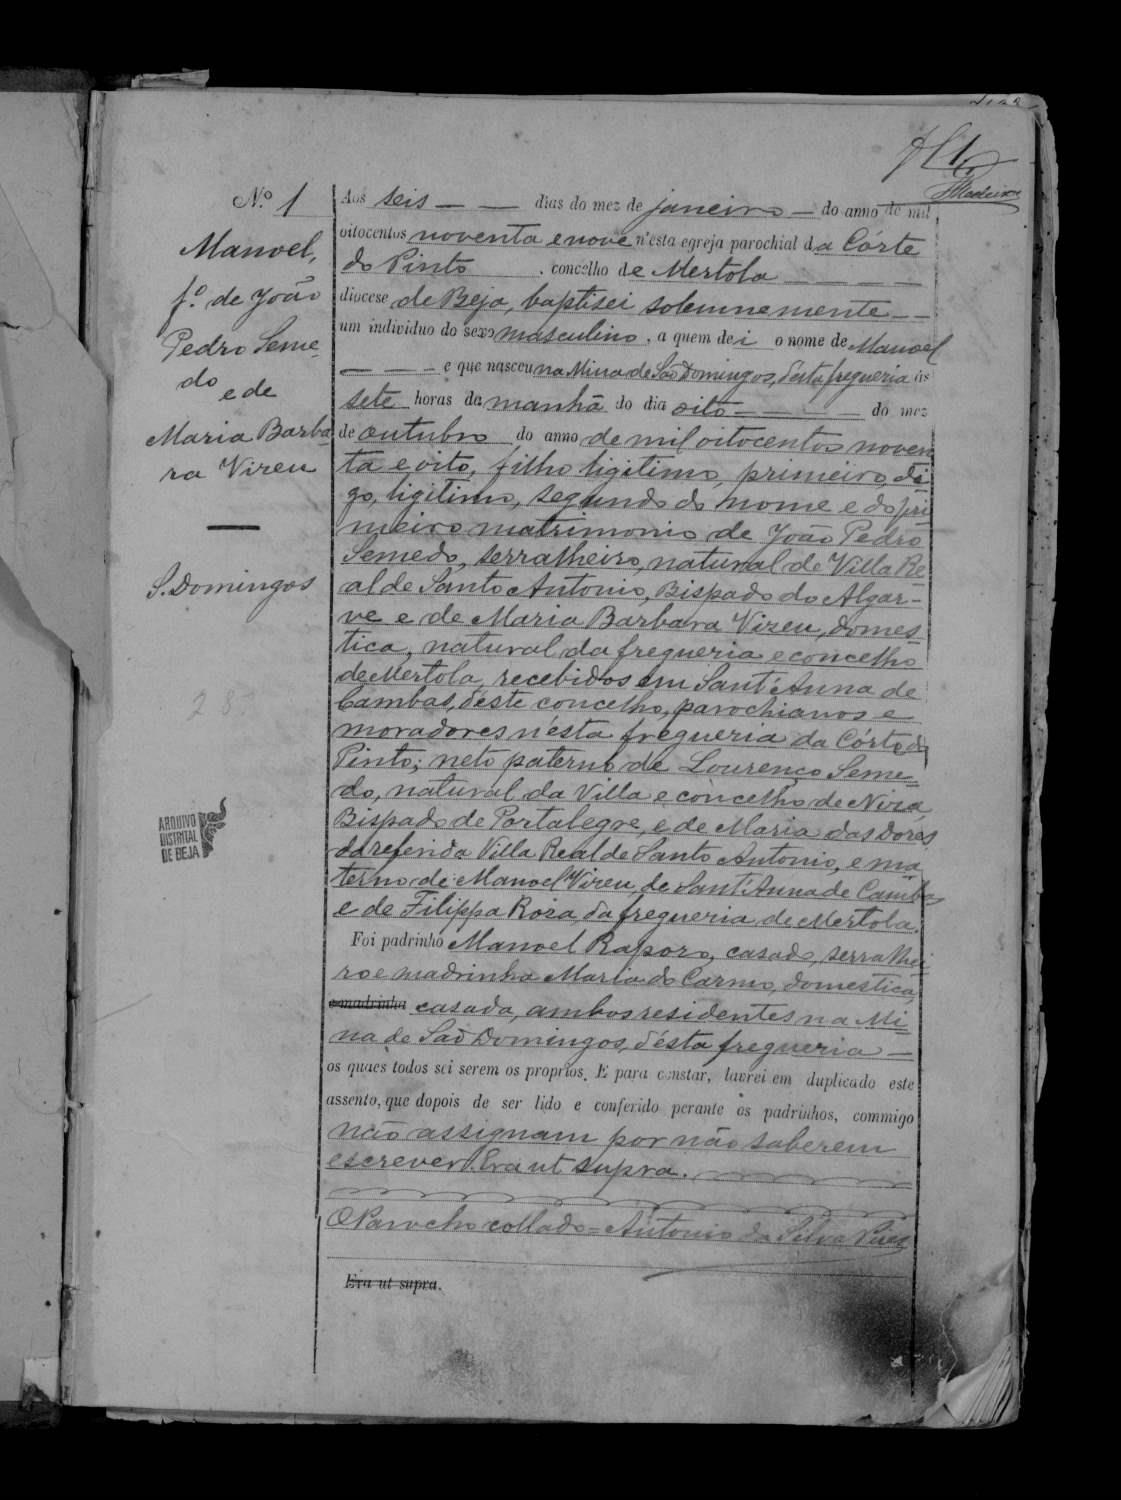 Nº 1
Manoel,
fº. de João
Pedro Seme-
do
e de
Maria Barba-
ra Vireu
S. Domingos
28
ARQUIVO
DISTRITAL
DE BEJA
Fl 1
Madeira
Aos seis — — dias do mez de janeiro — do anno de mil
oitocentos noventa e nove n'esta egreja parochial da Córte
do Pinto, concelho de Mertola — — — —
diocese de Beja, baptisei solemnemente — —
um individuo do sexo masculino, a quem dei o nome de Manoel
— — — e que nasceu na Mina de São Domingos, d'esta fregueria ás
sete horas da manhã do dia oito — — — — do mez
de outubro do anno de mil oitocentos noven
ta e oito, filho ligitimo, primeiro, di
go, ligitimo, segundo do nome e do pri-
meiro matrimonio de João Pedro
Semedo, serralheiro, natural de Villa Re-
al de Santo Antonio, Bispado do Algar-
ve e de Maria Barbara Vireu, domes-
tica, natural da fregueria e concelho
de Mertola, recebidos em Sant'Anna de
Cambas, déste concelho, parochianos e
moradores n'ésta fregueria da Córte do
Pinto; neto paterno de Lourenço Seme-
do, natural da Villa e concelho de Niza,
Bispado de Portalegre, e de Maria das Dores,
da referida Villa Real de Santo Antonio, e ma-
terno de Manoel Vireu, de Sant'Anna de Cambas
e de Filippa Rosa, da fregueria de Mertola.
Foi padrinho Manoel Raporo, casado, serralhei
ro e madrinha Maria do Carmo, domestica,
e madrinha casada, ambos residentes na Mi-
na de São Domingos, d'ésta fregueria —
os quaes todos sei serem os proprios. E para constar, lavrei em duplicado este
assento, que depois de ser lido e conferido perante os padrinhos, commigo
não assignam por não saberem
escrever. Era ut supra.
O Parocho collado = Antonio da Silva Pires
Era ut supra.